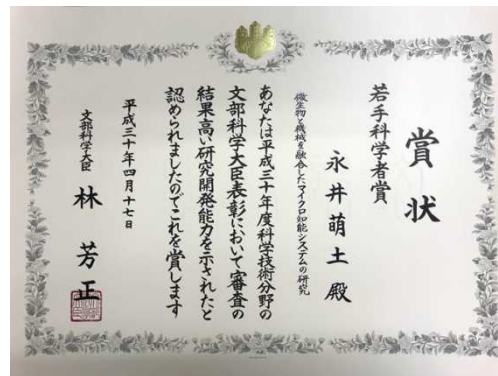 賞状
若手科学者賞
永井萌土殿
微生物と機械を融合したマイクロ知能システムの研究
あなたは平成三十年度科学技術分野の
文部科学大臣表彰において審査の
結果高い研究開発能力を示されたと
認められましたのでこれを賞します
平成三十年四月十七日
文部科学大臣 林芳正